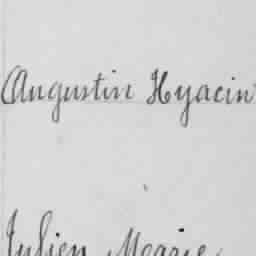 Augustin Hyacin
Julien Marie